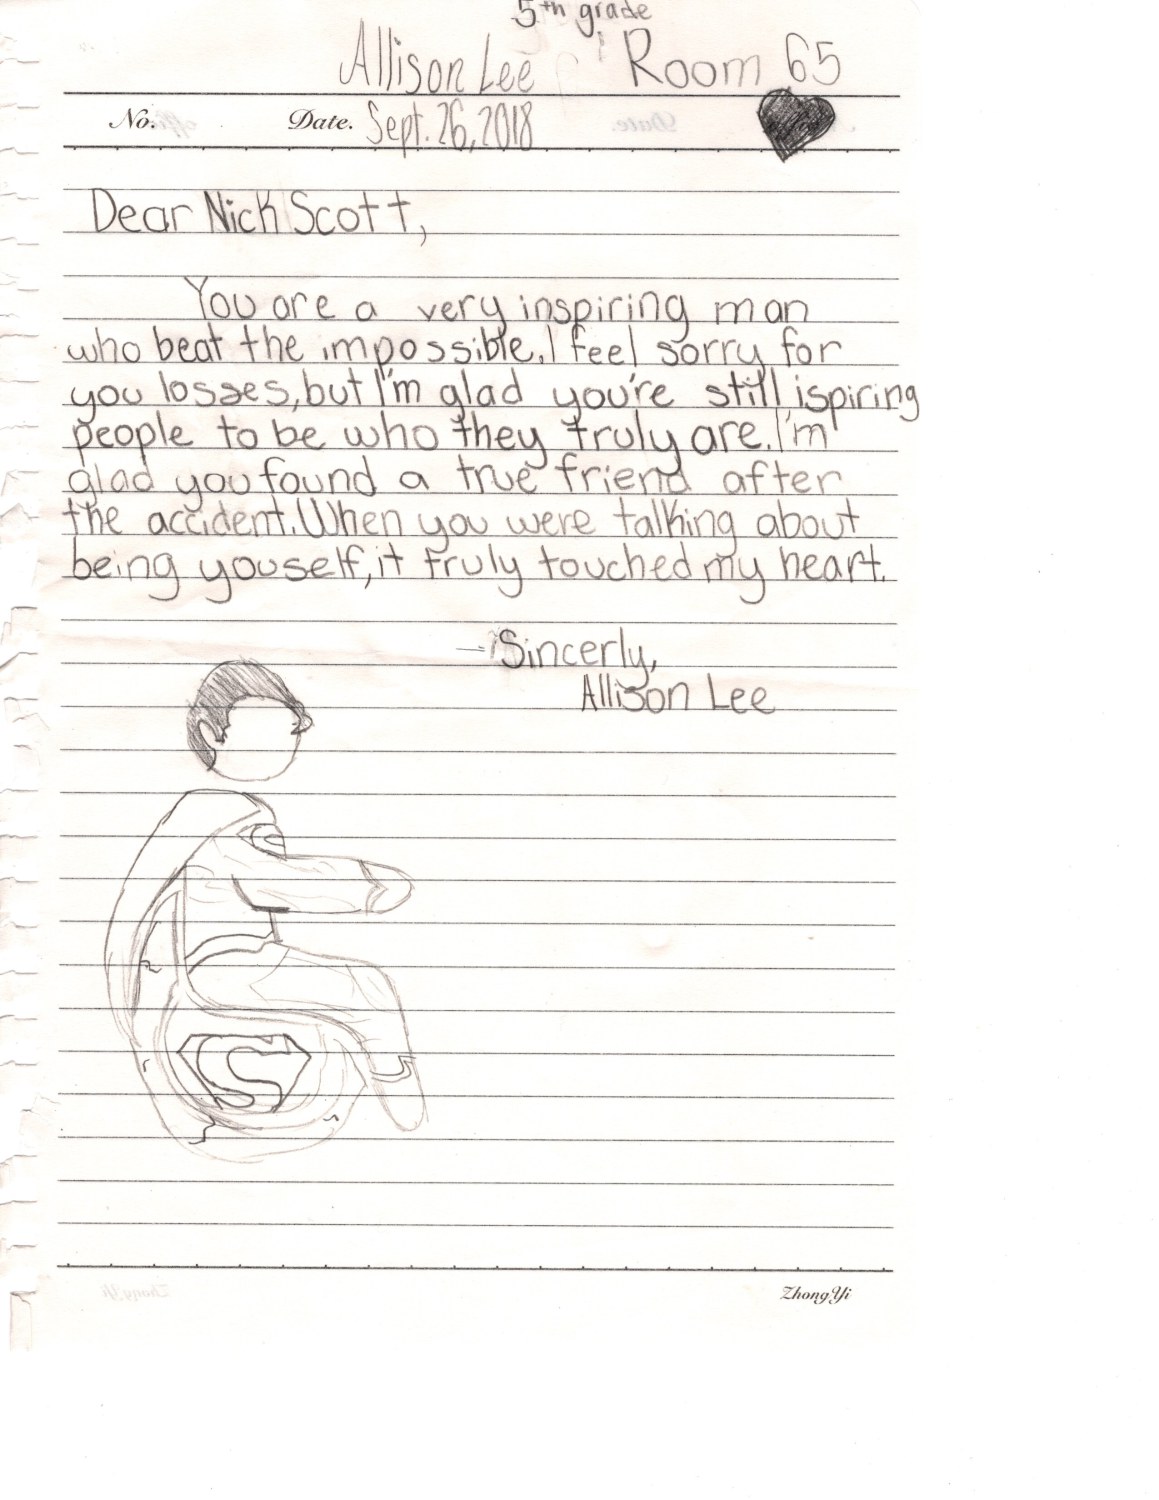 5th grade
Allison Lee Room 65
No. Date. Sept. 26, 2018
Dear Nick Scott,
You are a very inspiring man
who beat the impossible. I feel sorry for
you losses, but I'm glad you're still ispiring
people to be who they truly are. I'm
glad you found a true friend after
the accident. When you were talking about
being youself, it truly touched my heart.
Sincerly,
Allison Lee
S
ZhongYi